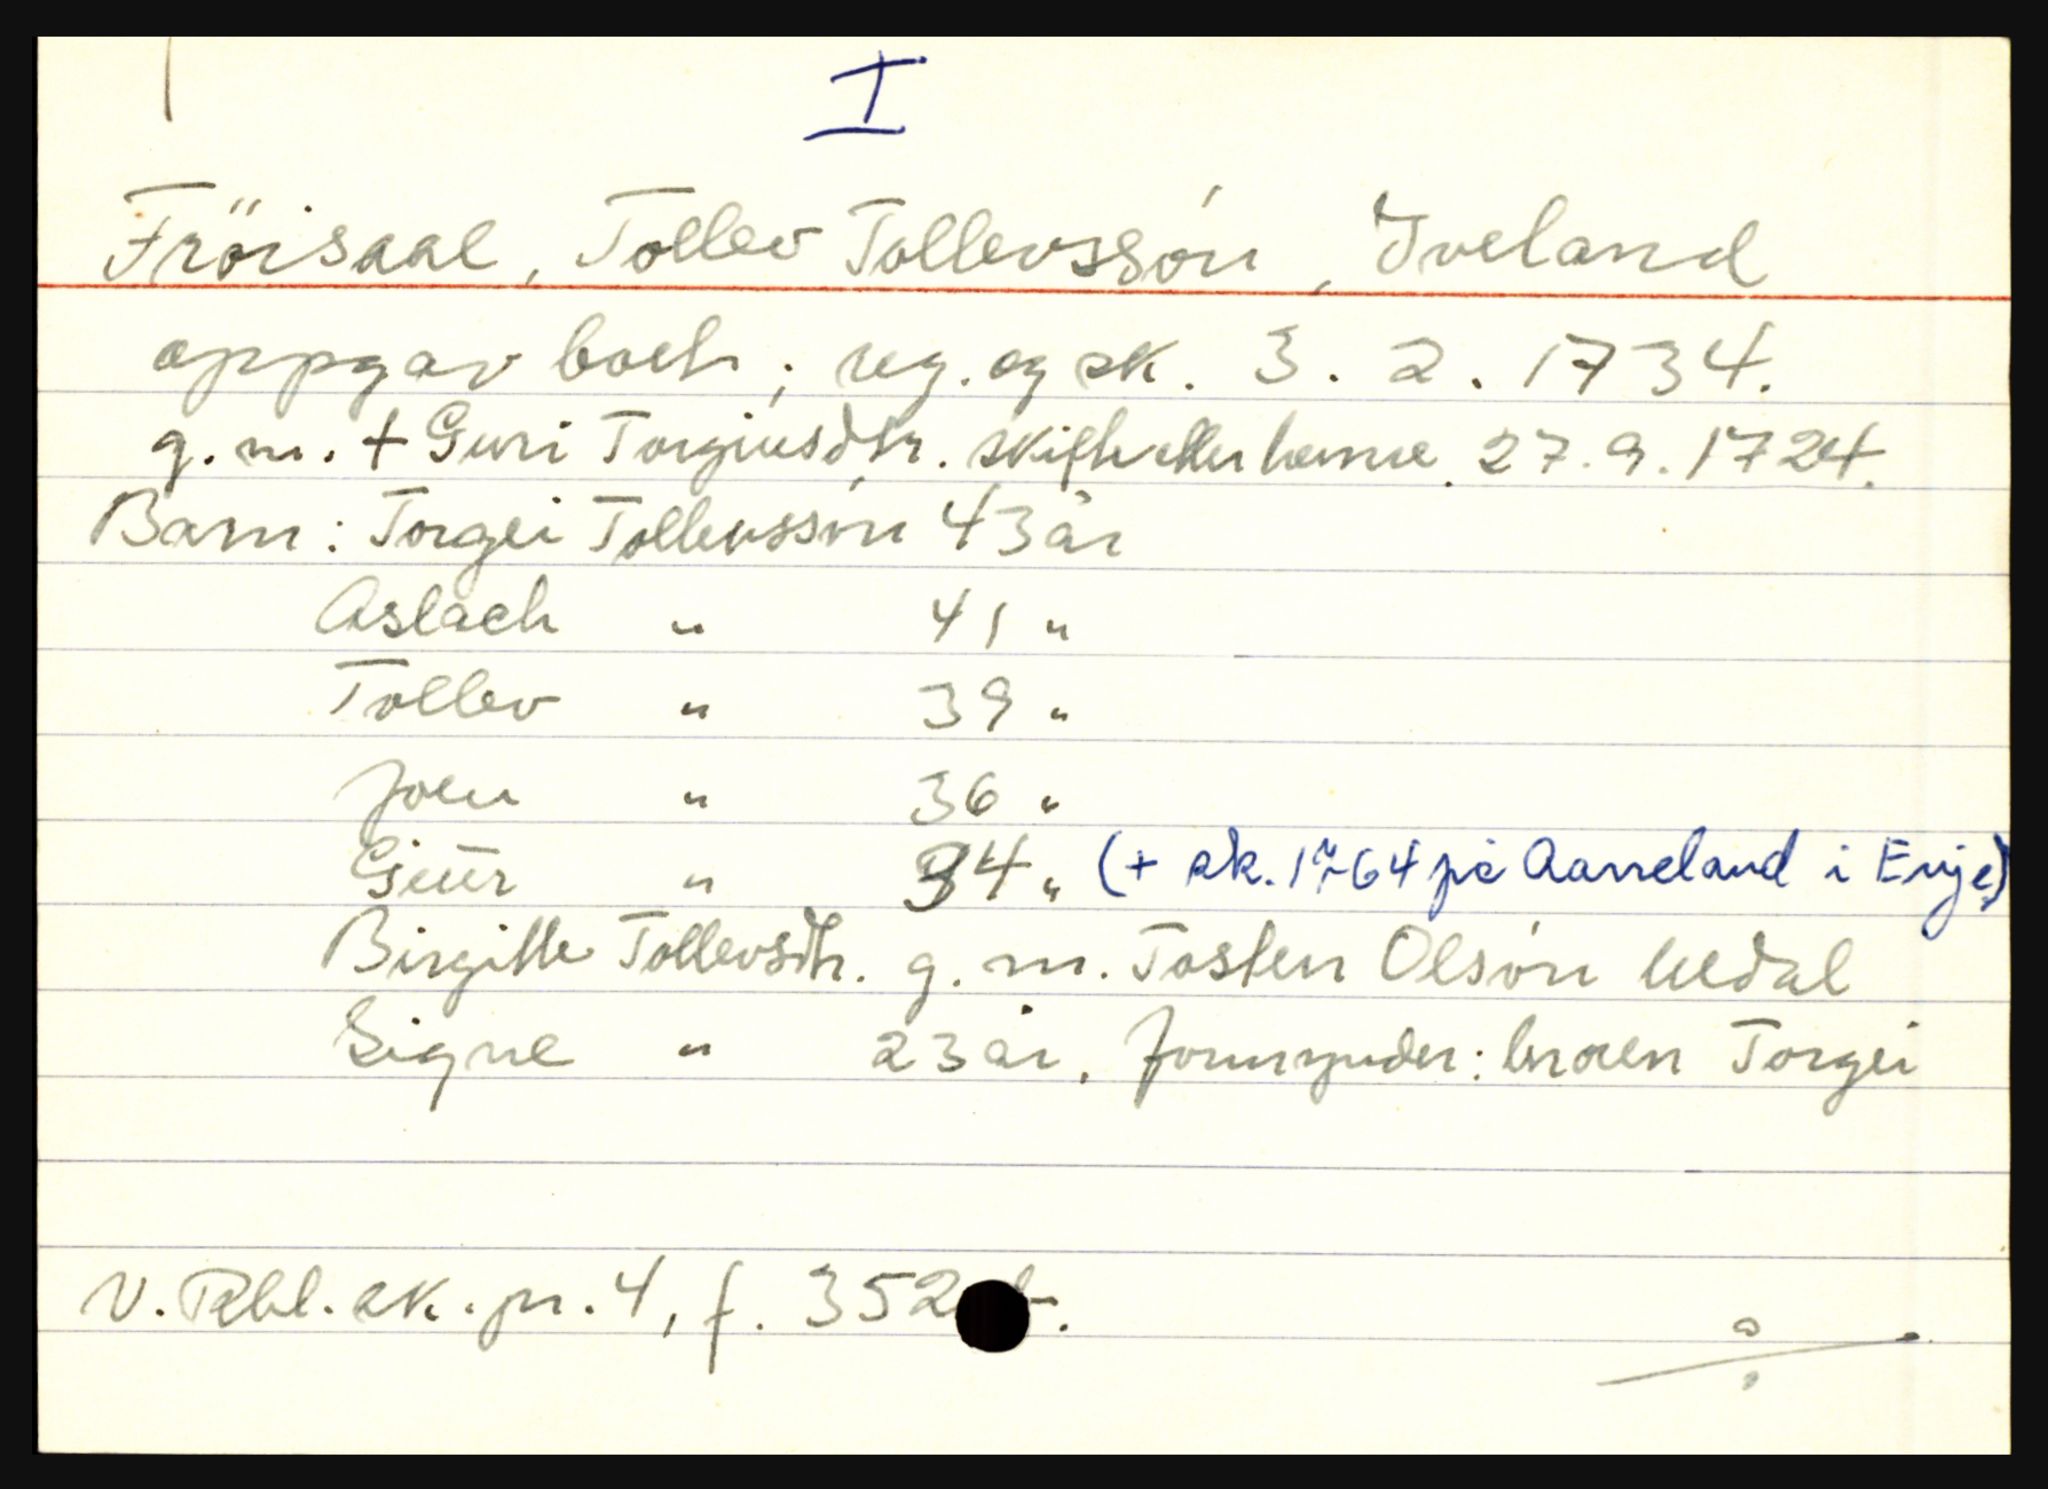 I
Fröisaal, Tollev Tollevssón, Iveland
oppgav boet; reg. og sk. 3. 2. 1734.
g. m. + Guri Torgiusdtr. skifte etter henne 27. 9. 1724.
Barn: Torgei Tollevssón 43 år
Aslach " 41 "
Tollev " 39 "
Joen " 36 "
Giuer " 34 " (+ sk. 1764 på Aaneland i Evje)
Birgitte Tollevsdtr. g. m. Tosten Olsón Uldal
Signe " 23 år, formynder: broren Torgei
V. Rbl. sk. pr. 4, f. 352